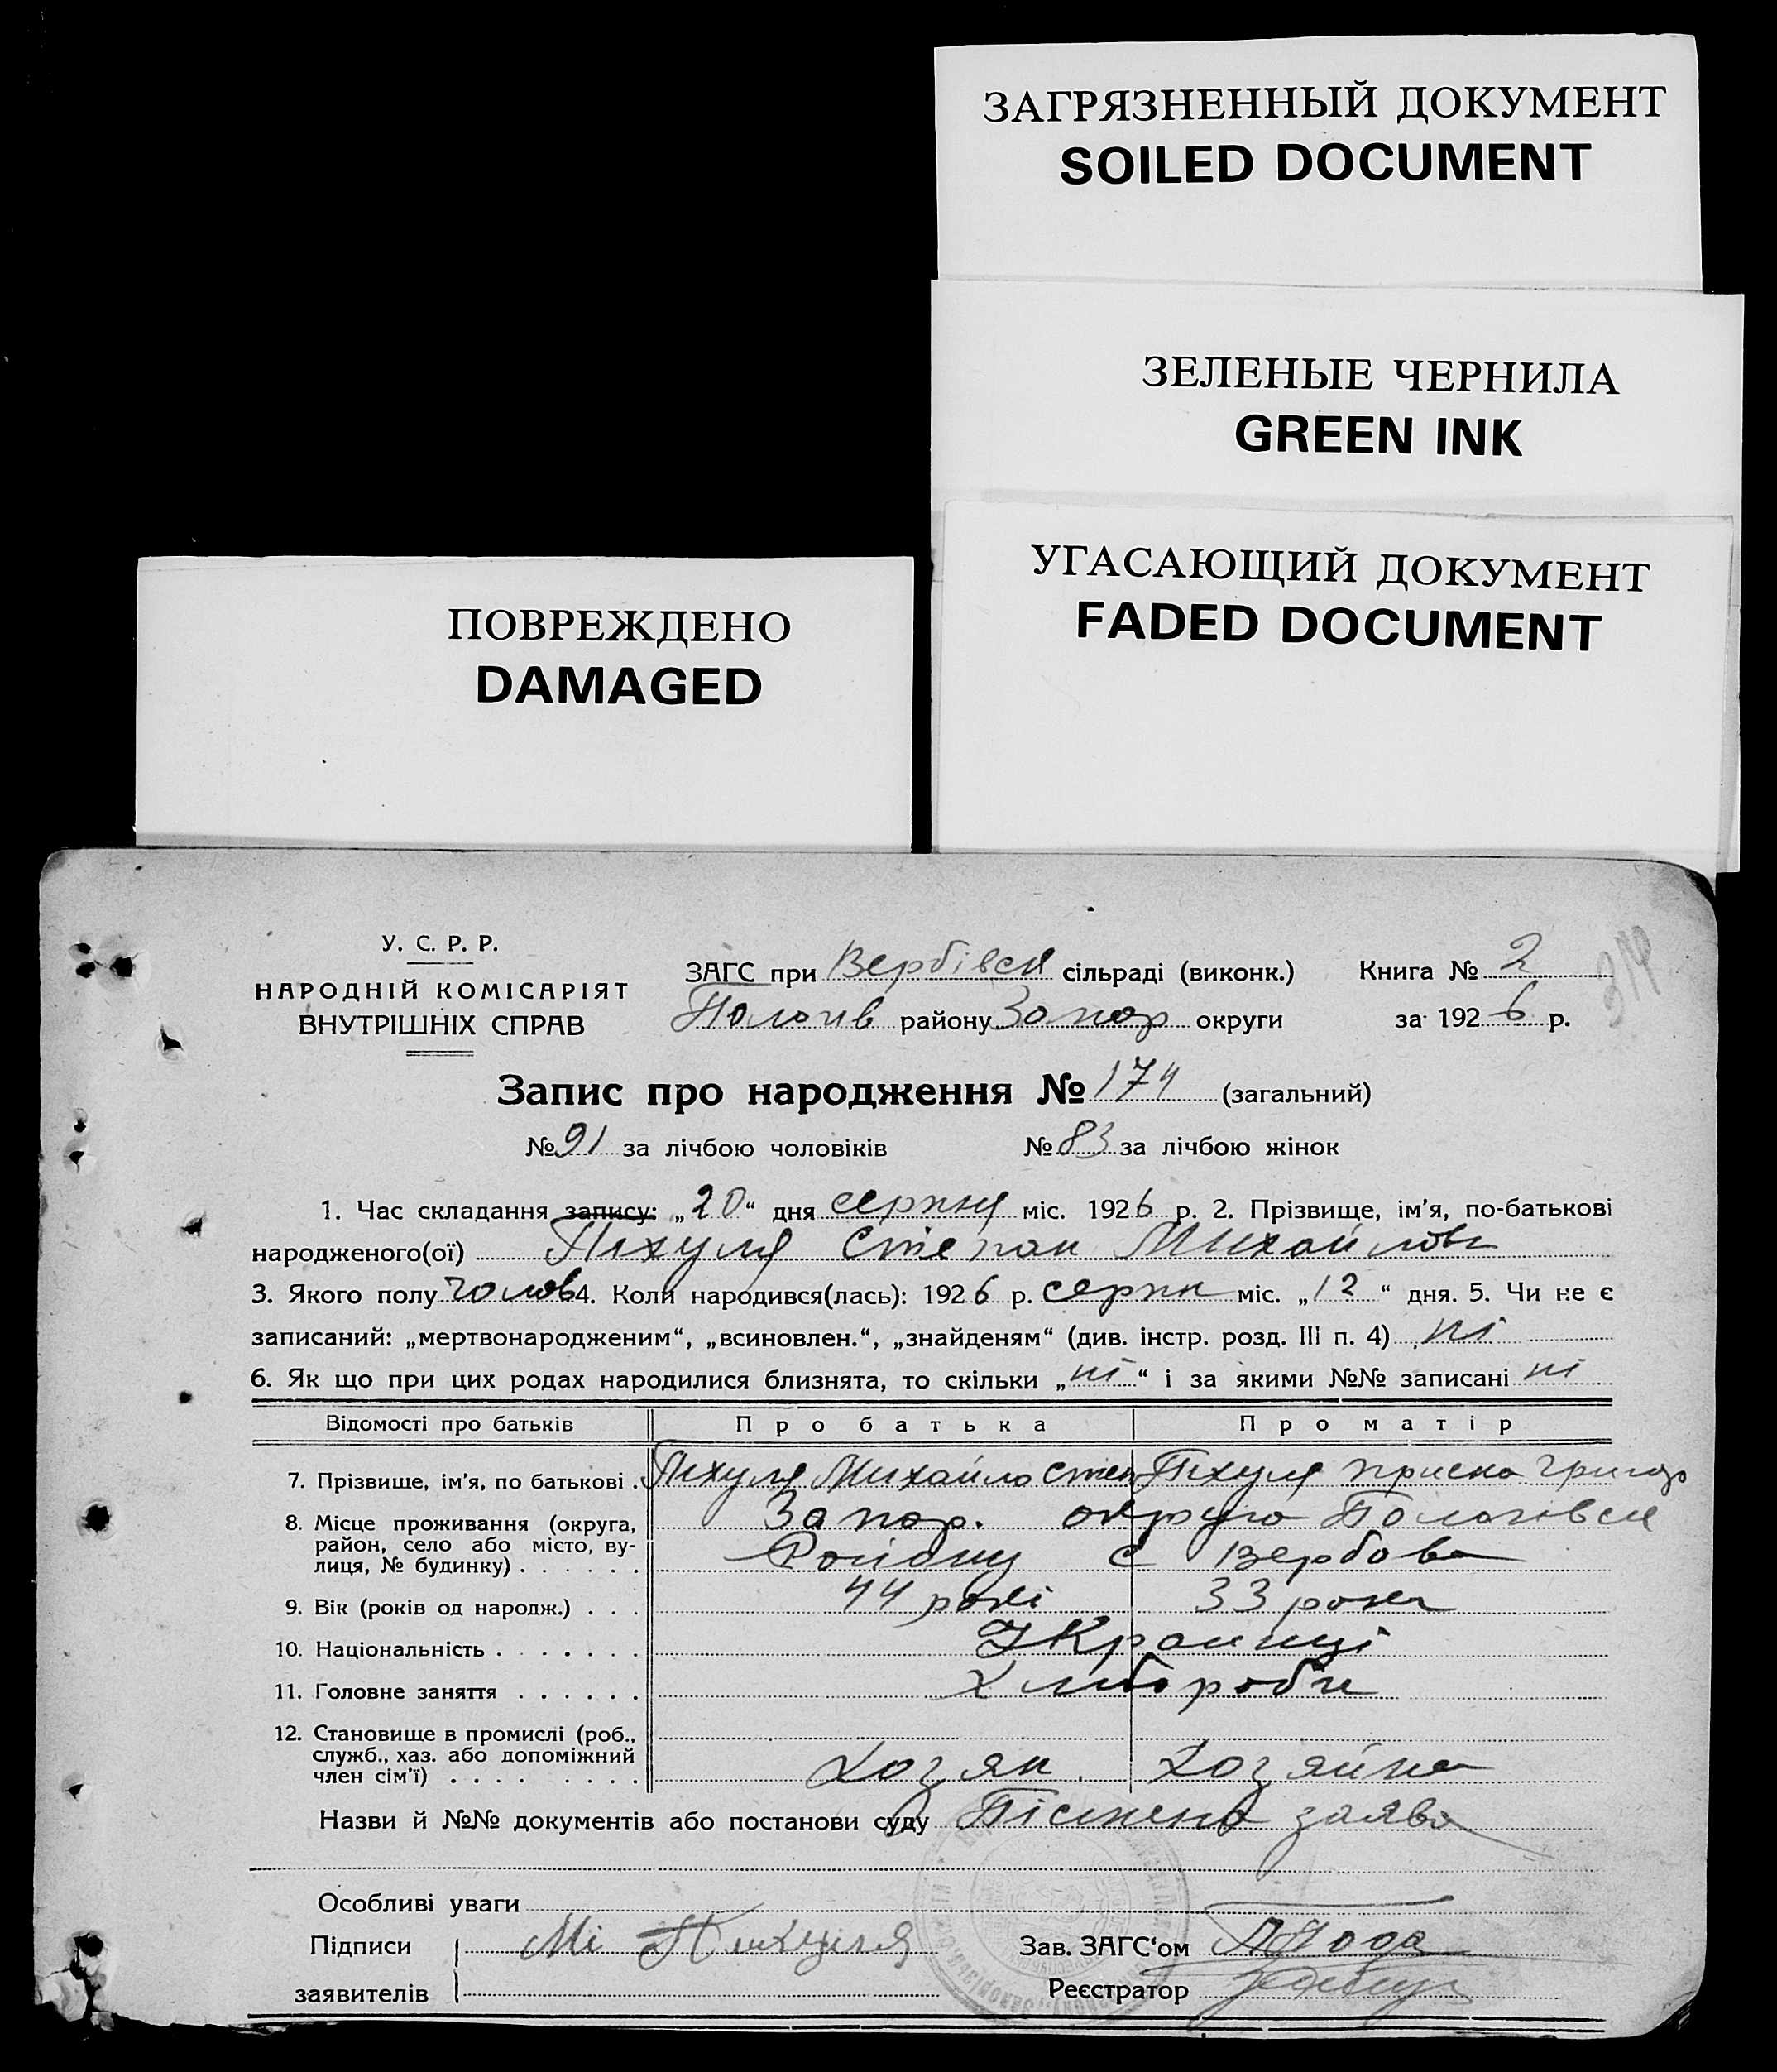 ЗАГРЯЗНЕННЫЙ ДОКУМЕНТ
SOILED DOCUMENT
ЗЕЛЕНЫЕ ЧЕРНИЛА
GREEN INK
УГАСАЮЩИЙ ДОКУМЕНТ
FADED DOCUMENT
ПОВРЕЖДЕНО
DAMAGED
У. С. Р. Р.
НАРОДНІЙ КОМІСАРІЯТ
ВНУТРІШНІХ СПРАВ
ЗАГС при Вербівск сільраді (виконк.) Книга № 2
Пологів району Запор округи за 1926 р.
319
Запис про народження № 174 (загальний)
№ 91 за лічбою чоловіків № 83 за лічбою жінок
1. Час складання запису: „20“ дня серпня міс. 1926 р. 2. Прізвище, ім'я, по-батькові
народженого(ої) Пихуля Степан Михайлов
3. Якого полу чолов 4. Коли народився(лась): 1926 р. серпн міс. „12“ дня. 5. Чи не є
записаний: „мертвонародженим“, „всиновлен.“, „знайденям“ (див. інстр. розд. III п. 4) ні
6. Як що при цих родах народилися близнята, то скільки „ні“ і за якими №№ записані ні
Відомості про батьків Про батька Про матір
7. Прізвище, ім'я, по батькові . Пихуля Михайло Степ Пихуля Приська Григор
8. Місце проживання (округа, Запор. округа Пологівск
район, село або місто, ву-
лиця, № будинку) . . . . . . Району с Вербова
9. Вік (років од народж.) . . . 44 рокі 33 роки
10. Національність . . . . . . . Украинці
11. Головне заняття . . . . . . Хлібороби
12. Становище в промислі (роб.,
служб., хаз. або допоміжний
член сім'ї) . . . . . . . . Хозяи. Хозяйка
Назви й №№ документів або постанови суду Пісмена заява
Особливі уваги
Підписи Мі Пихуля Зав. ЗАГС'ом
заявителів Реєстратор